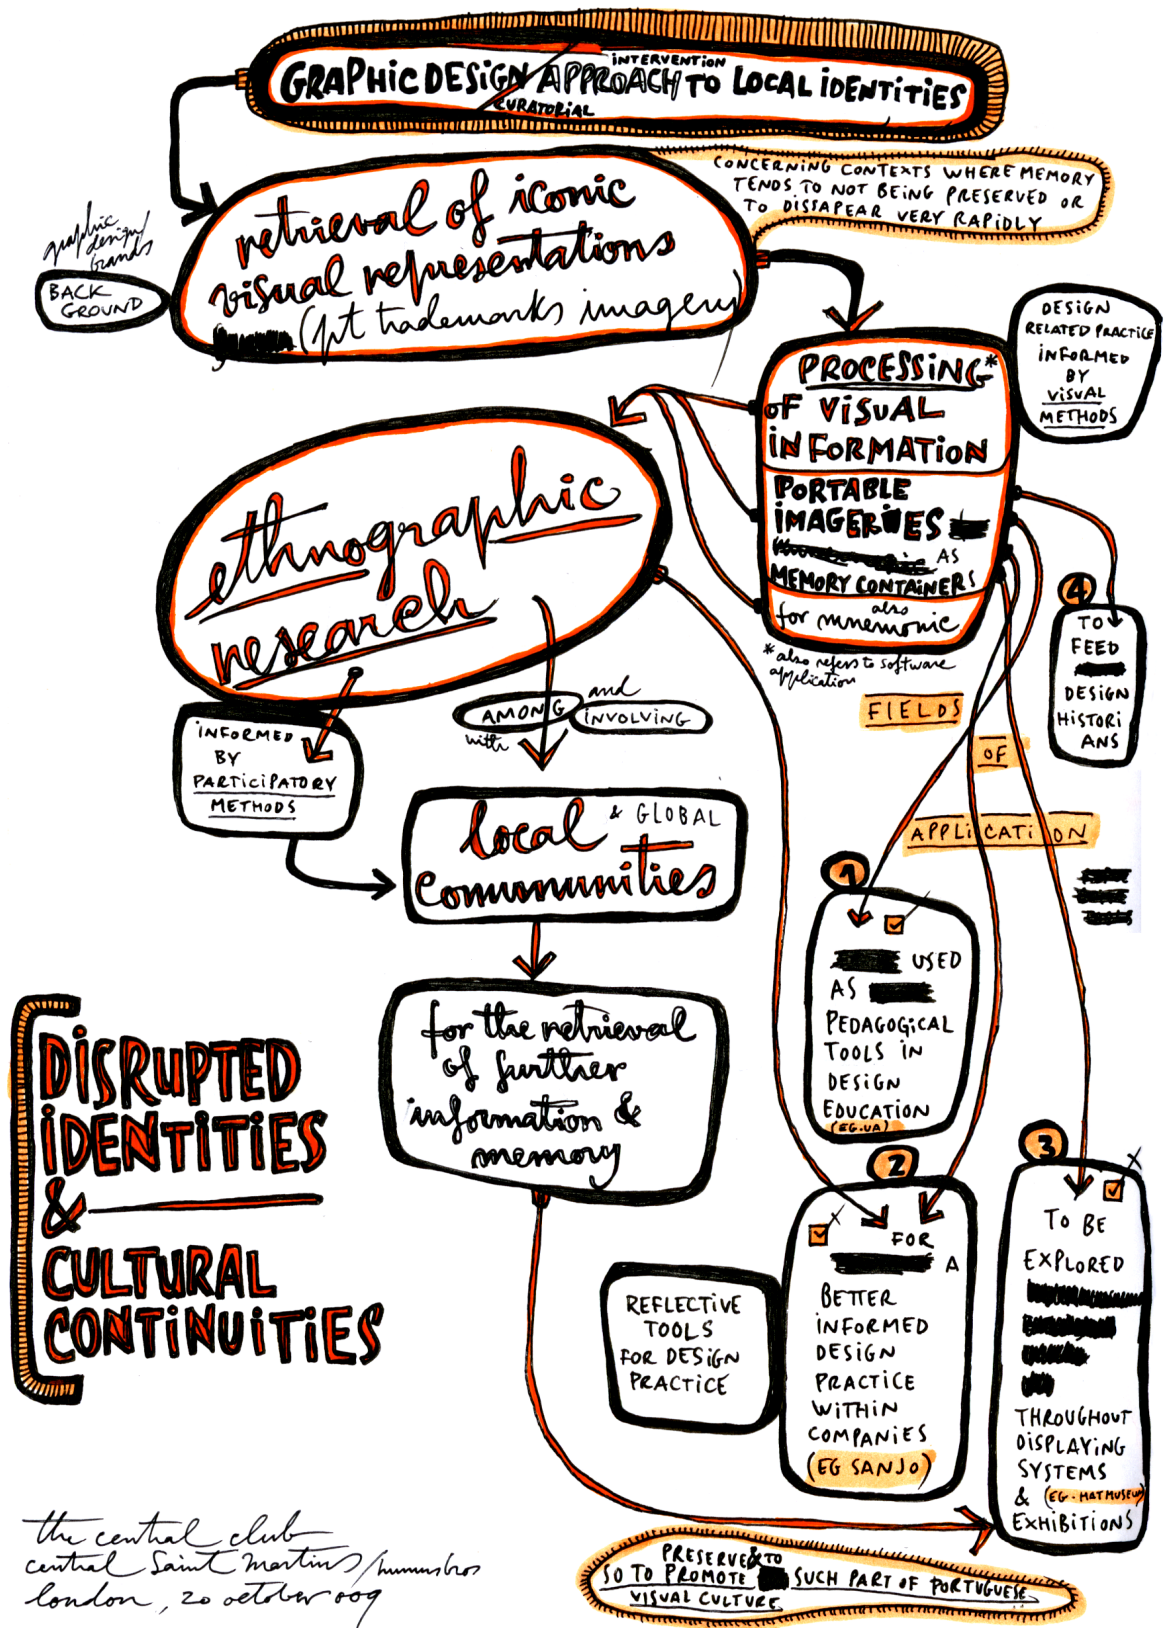 INTERVENTION
GRAPHIC DESIGN APPROACH TO LOCAL IDENTITIES
CURATORIAL
CONCERNING CONTEXTS WHERE MEMORY
TENDS TO NOT BEING PRESERVED OR
TO DISSAPEAR VERY RAPIDLY
retrieval of iconic
visual representations
(pt trademarks imagery)
graphic
design/
brands
BACK
GROUND
DESIGN
RELATED PRACTICE
INFORMED
BY
VISUAL
METHODS
PROCESSING*
OF VISUAL
INFORMATION
PORTABLE
IMAGERIES
AS
MEMORY CONTAINERS
also
for mnemonic
* also refers to software
application
ethnographic
research
INFORMED
BY
PARTICIPATORY
METHODS
AMONG and INVOLVING
with
local & GLOBAL
communities
for the retrieval
of further
information &
memory
FIELDS
OF
APPLICATION
4
TO
FEED
DESIGN
HISTORI
ANS
1
USED
AS
PEDAGOGICAL
TOOLS IN
DESIGN
EDUCATION
(EG. UA)
2
FOR
A
BETTER
INFORMED
DESIGN
PRACTICE
WITHIN
COMPANIES
(EG SANJO)
REFLECTIVE
TOOLS
FOR DESIGN
PRACTICE
3
TO BE
EXPLORED
THROUGHOUT
DISPLAYING
SYSTEMS
& (EG. HAT MUSEUM)
EXHIBITIONS
DISRUPTED
IDENTITIES
&
CULTURAL
CONTINUITIES
PRESERVE & TO
SO TO PROMOTE SUCH PART OF PORTUGUESE
VISUAL CULTURE
the central club
central Saint Martins/humusbros
london, 20 october 009